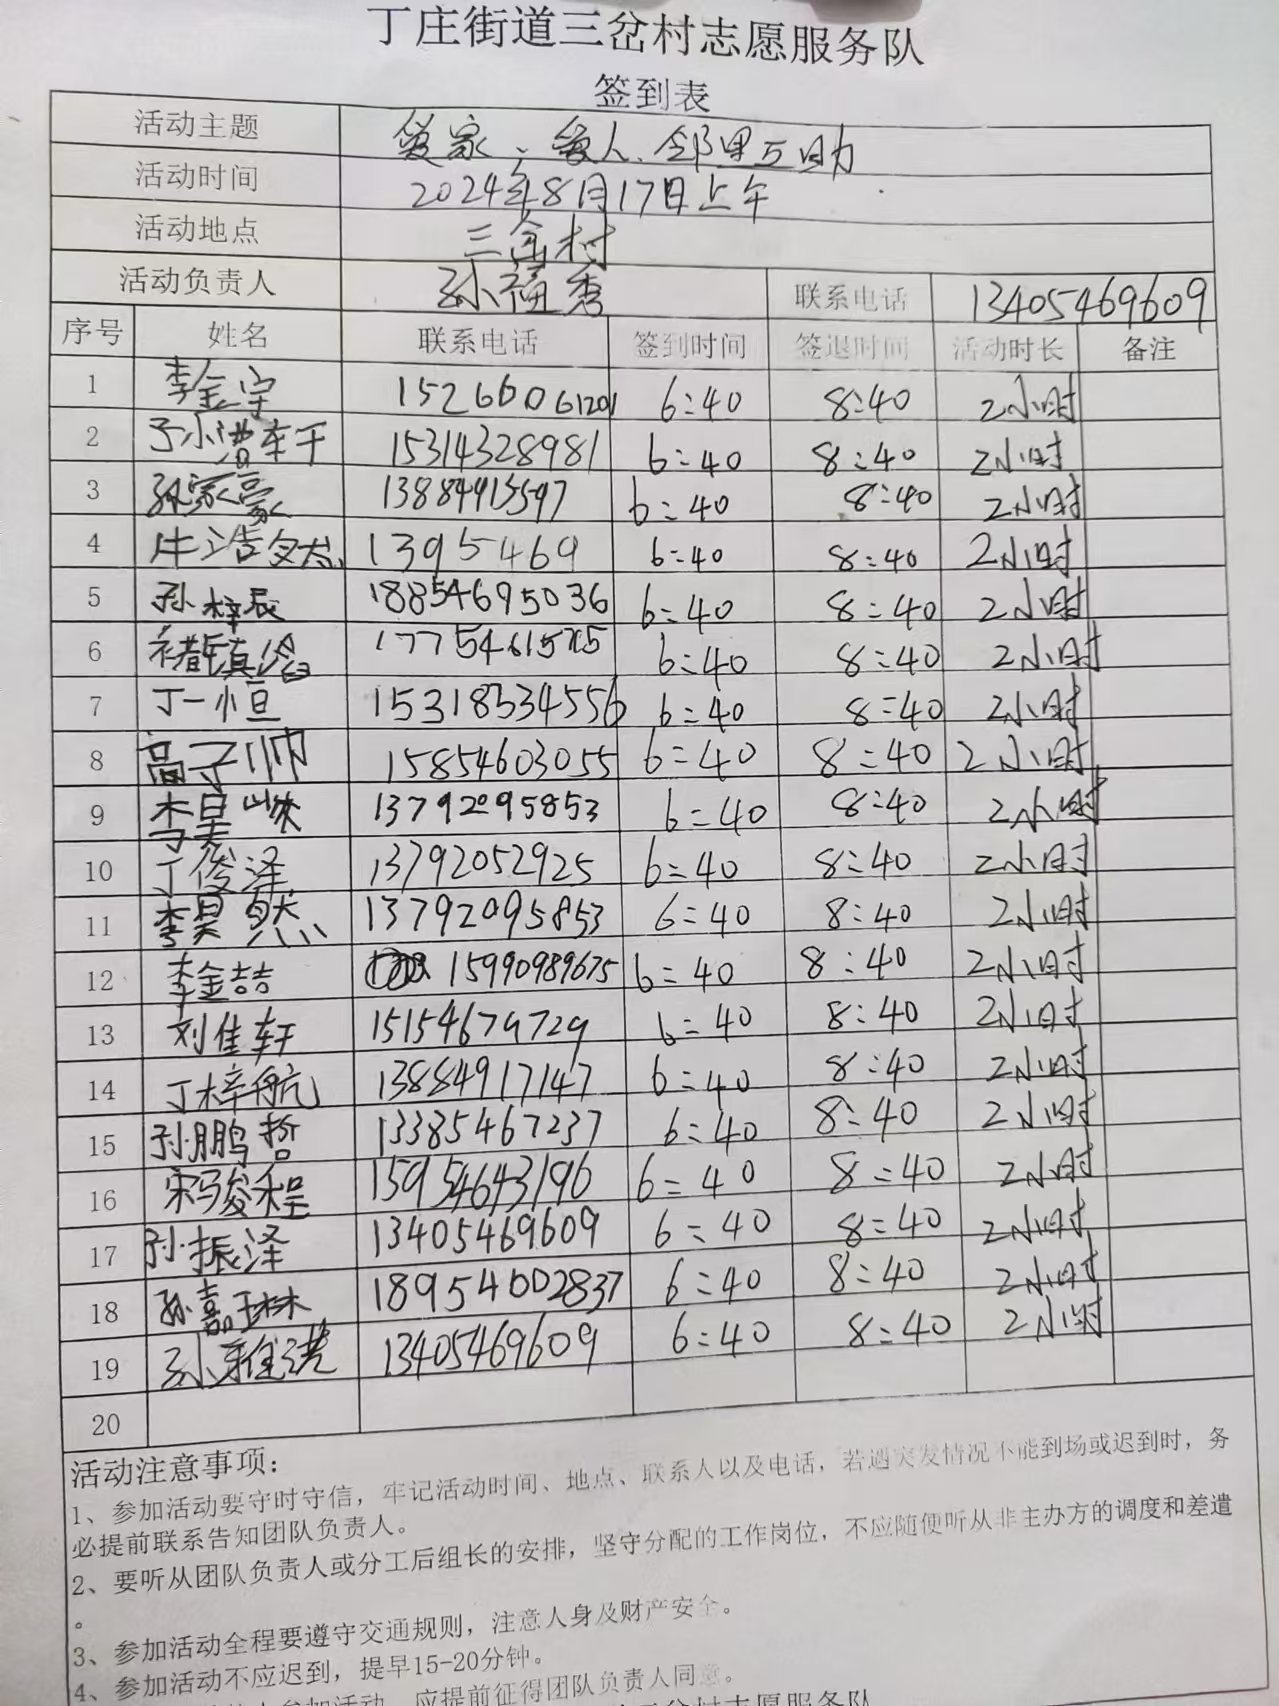 丁庄街道三岔村志愿服务队
签到表
活动主题 爱家、爱人、邻里互助
活动时间 2024年8月17日上午
活动地点 三岔村
活动负责人 孙福秀 联系电话 13405469609
序号 姓名 联系电话 签到时间 签退时间 活动时长 备注
1 李金宇 15266061201 6:40 8:40 2小时
2 15314328981 6:40 8:40 2小时
3 孙家豪 13884913597 6:40 8:40 2小时
4 牛浩然 1395469 6:40 8:40 2小时
5 孙梓辰 18854695036 6:40 8:40 2小时
6 6:40 8:40 2小时
7 丁一恒 15318334556 6:40 8:40 2小时
8 高子帅 15854603055 6:40 8:40 2小时
9 13792095853 6:40 8:40 2小时
10 丁俊泽 13792052925 6:40 8:40 2小时
11 李昊然 13792095853 6:40 8:40 2小时
12 李金喆 15990989675 6:40 8:40 2小时
13 刘佳轩 15154679729 6:40 8:40 2小时
14 丁梓航 13884917147 6:40 8:40 2小时
15 孙鹏哲 13385467237 6:40 8:40 2小时
16 宋骏程 15954643196 6:40 8:40 2小时
17 孙振泽 13405469609 6:40 8:40 2小时
18 孙嘉琳 18954602837 6:40 8:40 2小时
19 孙雅淇 13405469609 6:40 8:40 2小时
20
活动注意事项：
1、参加活动要守时守信，牢记活动时间、地点、联系人以及电话，若遇突发情况不能到场或迟到时，务
必提前联系告知团队负责人。
2、要听从团队负责人或分工后组长的安排，坚守分配的工作岗位，不应随便听从非主办方的调度和差遣
。
3、参加活动全程要遵守交通规则，注意人身及财产安全。
4、参加活动不应迟到，提早15-20分钟。
参加活动，应提前征得团队负责人同意。
村志愿服务队